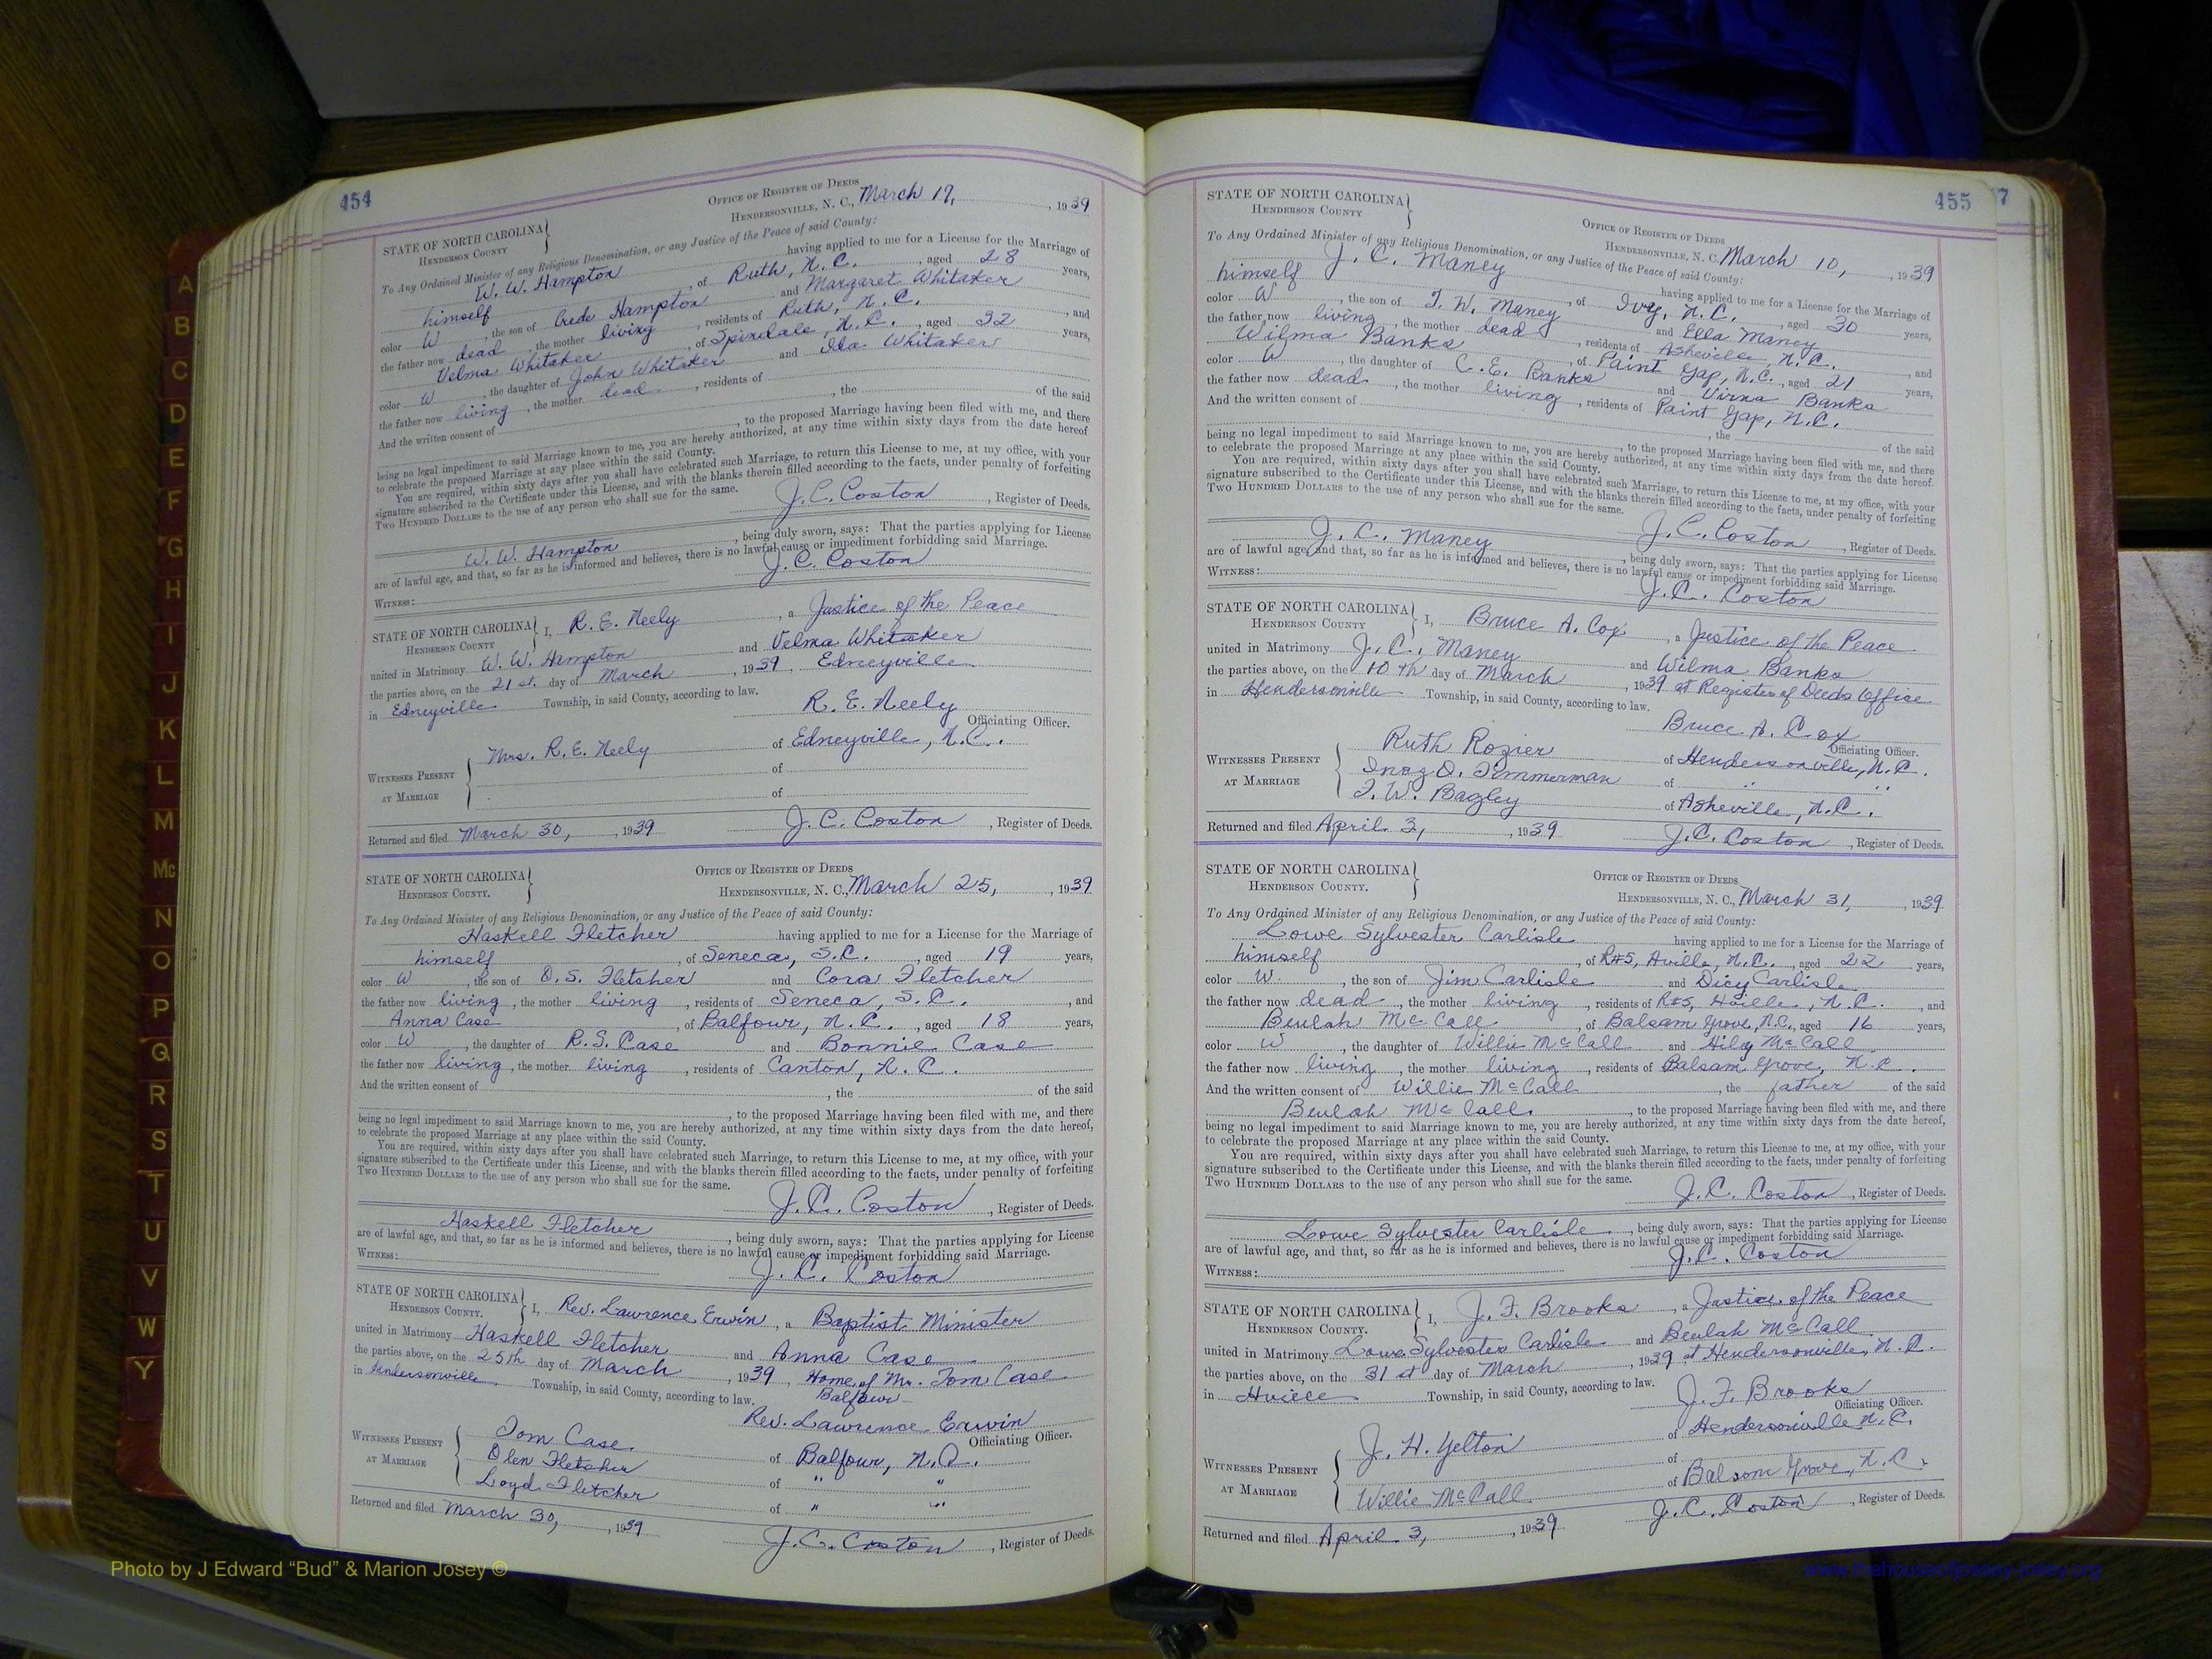 454
OFFICE OF REGISTER OF DEEDS
HENDERSONVILLE, N. C., March 17, , 1939
STATE OF NORTH CAROLINA
HENDERSON COUNTY
To Any Ordained Minister of any Religious Denomination, or any Justice of the Peace of said County:
W. W. Hampton having applied to me for a License for the Marriage of
himself , of Ruth, N.C. , aged 28 years,
color W , the son of Hampton and Margaret Whitaker
the father now dead , the mother living , residents of Ruth, N.C. , and
Velma Whitaker , of Spindale, N.C. , aged 32 years,
color W , the daughter of John Whitaker and Ida Whitaker
the father now living , the mother dead , residents of
And the written consent of , the of the said
, to the proposed Marriage having been filed with me, and there
being no legal impediment to said Marriage known to me, you are hereby authorized, at any time within sixty days from the date hereof
to celebrate the proposed Marriage at any place within the said County.
You are required, within sixty days after you shall have celebrated such Marriage, to return this License to me, at my office, with your
signature subscribed to the Certificate under this License, and with the blanks therein filled according to the facts, under penalty of forfeiting
TWO HUNDRED DOLLARS to the use of any person who shall sue for the same.
J.C. Coston , Register of Deeds.
W. W. Hampton , being duly sworn, says: That the parties applying for License
are of lawful age, and that, so far as he is informed and believes, there is no lawful cause or impediment forbidding said Marriage.
WITNESS: J.C. Coston
STATE OF NORTH CAROLINA
HENDERSON COUNTY
I, R. E. Neely , a Justice of the Peace
united in Matrimony W. W. Hampton and Velma Whitaker
the parties above, on the 21st. day of March , 1939, Edneyville
in Edneyville Township, in said County, according to law.
R. E. Neely
Officiating Officer.
WITNESSES PRESENT
AT MARRIAGE
Mrs. R.E. Neely of Edneyville, N.C.
of
of
Returned and filed March 30, , 1939 J.C. Coston , Register of Deeds.
OFFICE OF REGISTER OF DEEDS
STATE OF NORTH CAROLINA
HENDERSON COUNTY.
HENDERSONVILLE, N. C., March 25, , 1939
To Any Ordained Minister of any Religious Denomination, or any Justice of the Peace of said County:
Haskell Fletcher having applied to me for a License for the Marriage of
himself , of Seneca, S.C. , aged 19 years,
color W , the son of O. S. Fletcher and Cora Fletcher
the father now living , the mother living , residents of Seneca, S.C. , and
Anna Case , of Balfour, N.C. , aged 18 years,
color W , the daughter of R.S. Case and Bonnie Case
the father now living , the mother living , residents of Canton, N.C.
And the written consent of , the of the said
, to the proposed Marriage having been filed with me, and there
being no legal impediment to said Marriage known to me, you are hereby authorized, at any time within sixty days from the date hereof,
to celebrate the proposed Marriage at any place within the said County.
You are required, within sixty days after you shall have celebrated such Marriage, to return this License to me, at my office, with your
signature subscribed to the Certificate under this License, and with the blanks therein filled according to the facts, under penalty of forfeiting
TWO HUNDRED DOLLARS to the use of any person who shall sue for the same.
J.C. Coston , Register of Deeds.
Haskell Fletcher , being duly sworn, says: That the parties applying for License
are of lawful age, and that, so far as he is informed and believes, there is no lawful cause or impediment forbidding said Marriage.
WITNESS: J.C. Coston
STATE OF NORTH CAROLINA
HENDERSON COUNTY.
I, Rev. Lawrence Erwin , a Baptist Minister
united in Matrimony Haskell Fletcher and Anna Case
the parties above, on the 25th day of March , 1939, Home of Mr. Tom Case
in Hendersonville Township, in said County, according to law. Balfour
Rev. Lawrence Erwin
Officiating Officer.
WITNESSES PRESENT
AT MARRIAGE
Tom Case of Balfour, N.C.
Olen Fletcher of " "
Loyd Fletcher of " "
Returned and filed March 30, , 1939
J.C. Coston , Register of Deeds.
455
7
STATE OF NORTH CAROLINA
HENDERSON COUNTY
OFFICE OF REGISTER OF DEEDS
HENDERSONVILLE, N. C. March 10, , 1939
To Any Ordained Minister of any Religious Denomination, or any Justice of the Peace of said County:
J. C. Maney having applied to me for a License for the Marriage of
himself , of Ivy, N.C. , aged 30 years,
color W , the son of T. W. Maney and Ella Maney
the father now living , the mother dead , residents of Asheville, N.C. , and
Wilma Banks , of Paint Gap, N.C. , aged 21 years,
color W , the daughter of C. E. Banks and Virna Banks
the father now dead , the mother living , residents of Paint Gap, N.C.
And the written consent of , the of the said
, to the proposed Marriage having been filed with me, and there
being no legal impediment to said Marriage known to me, you are hereby authorized, at any time within sixty days from the date hereof
to celebrate the proposed Marriage at any place within the said County.
You are required, within sixty days after you shall have celebrated such Marriage, to return this License to me, at my office, with your
signature subscribed to the Certificate under this License, and with the blanks therein filled according to the facts, under penalty of forfeiting
TWO HUNDRED DOLLARS to the use of any person who shall sue for the same.
J.C. Coston , Register of Deeds.
J. C. Maney , being duly sworn, says: That the parties applying for License
are of lawful age, and that, so far as he is informed and believes, there is no lawful cause or impediment forbidding said Marriage.
WITNESS: J.C. Coston
STATE OF NORTH CAROLINA
HENDERSON COUNTY
I, Bruce A. Cox , a Justice of the Peace
united in Matrimony J. C. Maney and Wilma Banks
the parties above, on the 10th day of March , 1939 at Register of Deeds Office
in Hendersonville Township, in said County, according to law.
Bruce A. Cox
Officiating Officer.
WITNESSES PRESENT
AT MARRIAGE
Ruth Rozier of Hendersonville, N.C.
Inez O. Zimmerman of " "
T. W. Bagley of Asheville, N.C.
Returned and filed April 3, , 1939 J.C. Coston , Register of Deeds.
STATE OF NORTH CAROLINA
HENDERSON COUNTY.
OFFICE OF REGISTER OF DEEDS
HENDERSONVILLE, N. C., March 31, , 1939
To Any Ordained Minister of any Religious Denomination, or any Justice of the Peace of said County:
Lowe Sylvester Carlisle having applied to me for a License for the Marriage of
himself , of R#5, Hville, N.C. , aged 22 years,
color W. , the son of Jim Carlisle and Dicy Carlisle
the father now dead , the mother living , residents of R#5, Hville, N.C. , and
Beulah McCall , of Balsam Grove, N.C., aged 16 years,
color W , the daughter of Willie McCall and McCall
the father now living , the mother living , residents of Balsam Grove, N.C.
And the written consent of Willie McCall , the father of the said
Beulah McCall , to the proposed Marriage having been filed with me, and there
being no legal impediment to said Marriage known to me, you are hereby authorized, at any time within sixty days from the date hereof,
to celebrate the proposed Marriage at any place within the said County.
You are required, within sixty days after you shall have celebrated such Marriage, to return this License to me, at my office, with your
signature subscribed to the Certificate under this License, and with the blanks therein filled according to the facts, under penalty of forfeiting
TWO HUNDRED DOLLARS to the use of any person who shall sue for the same.
J.C. Coston , Register of Deeds.
Lowe Sylvester Carlisle , being duly sworn, says: That the parties applying for License
are of lawful age, and that, so far as he is informed and believes, there is no lawful cause or impediment forbidding said Marriage.
WITNESS: J.C. Coston
STATE OF NORTH CAROLINA
HENDERSON COUNTY.
I, J. F. Brooks , a Justice of the Peace
united in Matrimony Lowe Sylvester Carlisle and Beulah McCall
the parties above, on the 31st day of March , 1939 at Hendersonville, N.C.
in Hville Township, in said County, according to law.
J. F. Brooks
Officiating Officer.
WITNESSES PRESENT
AT MARRIAGE
J. H. Yelton of Hendersonville N.C.
of
Willie McCall of Balsom Grove, N.C.
Returned and filed April 3, , 1939 J.C. Coston , Register of Deeds.
A
B
C
D
E
F
G
H
I
J
K
L
M
Mc
N
O
P
Q
R
S
T
U
V
W
Y
Photo by J Edward “Bud” & Marion Josey ©
www.thehouseofjossey-josey.org